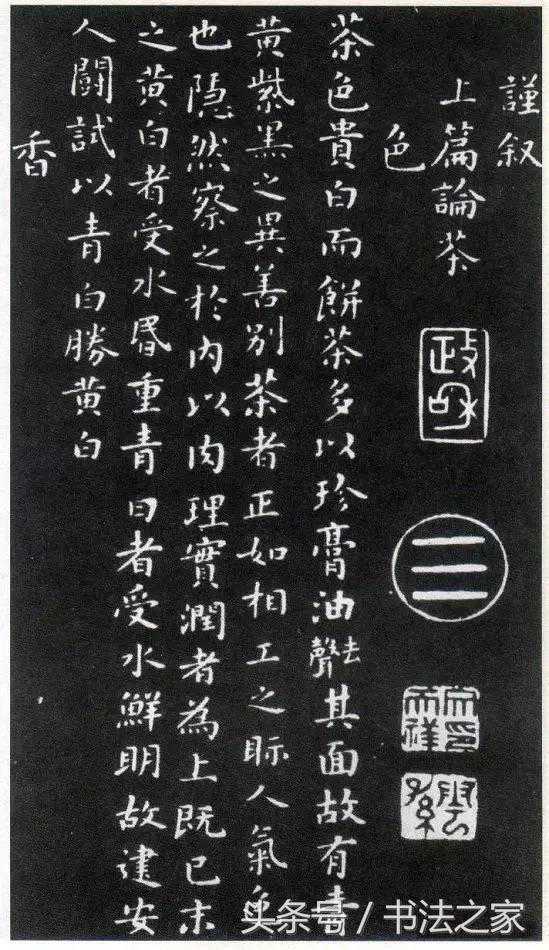 謹叙
上篇論茶
色
茶色貴白而餅茶多以珍膏油去聲其面故有青
黄紫黑之異善别茶者正如相工之眎人氣色
也隱然察之於内以肉理實潤者為上既已末
之黄白者受水昬重青白者受水鮮明故建安
人鬭試以青白勝黄白
香
政和
头条号 / 书法之家